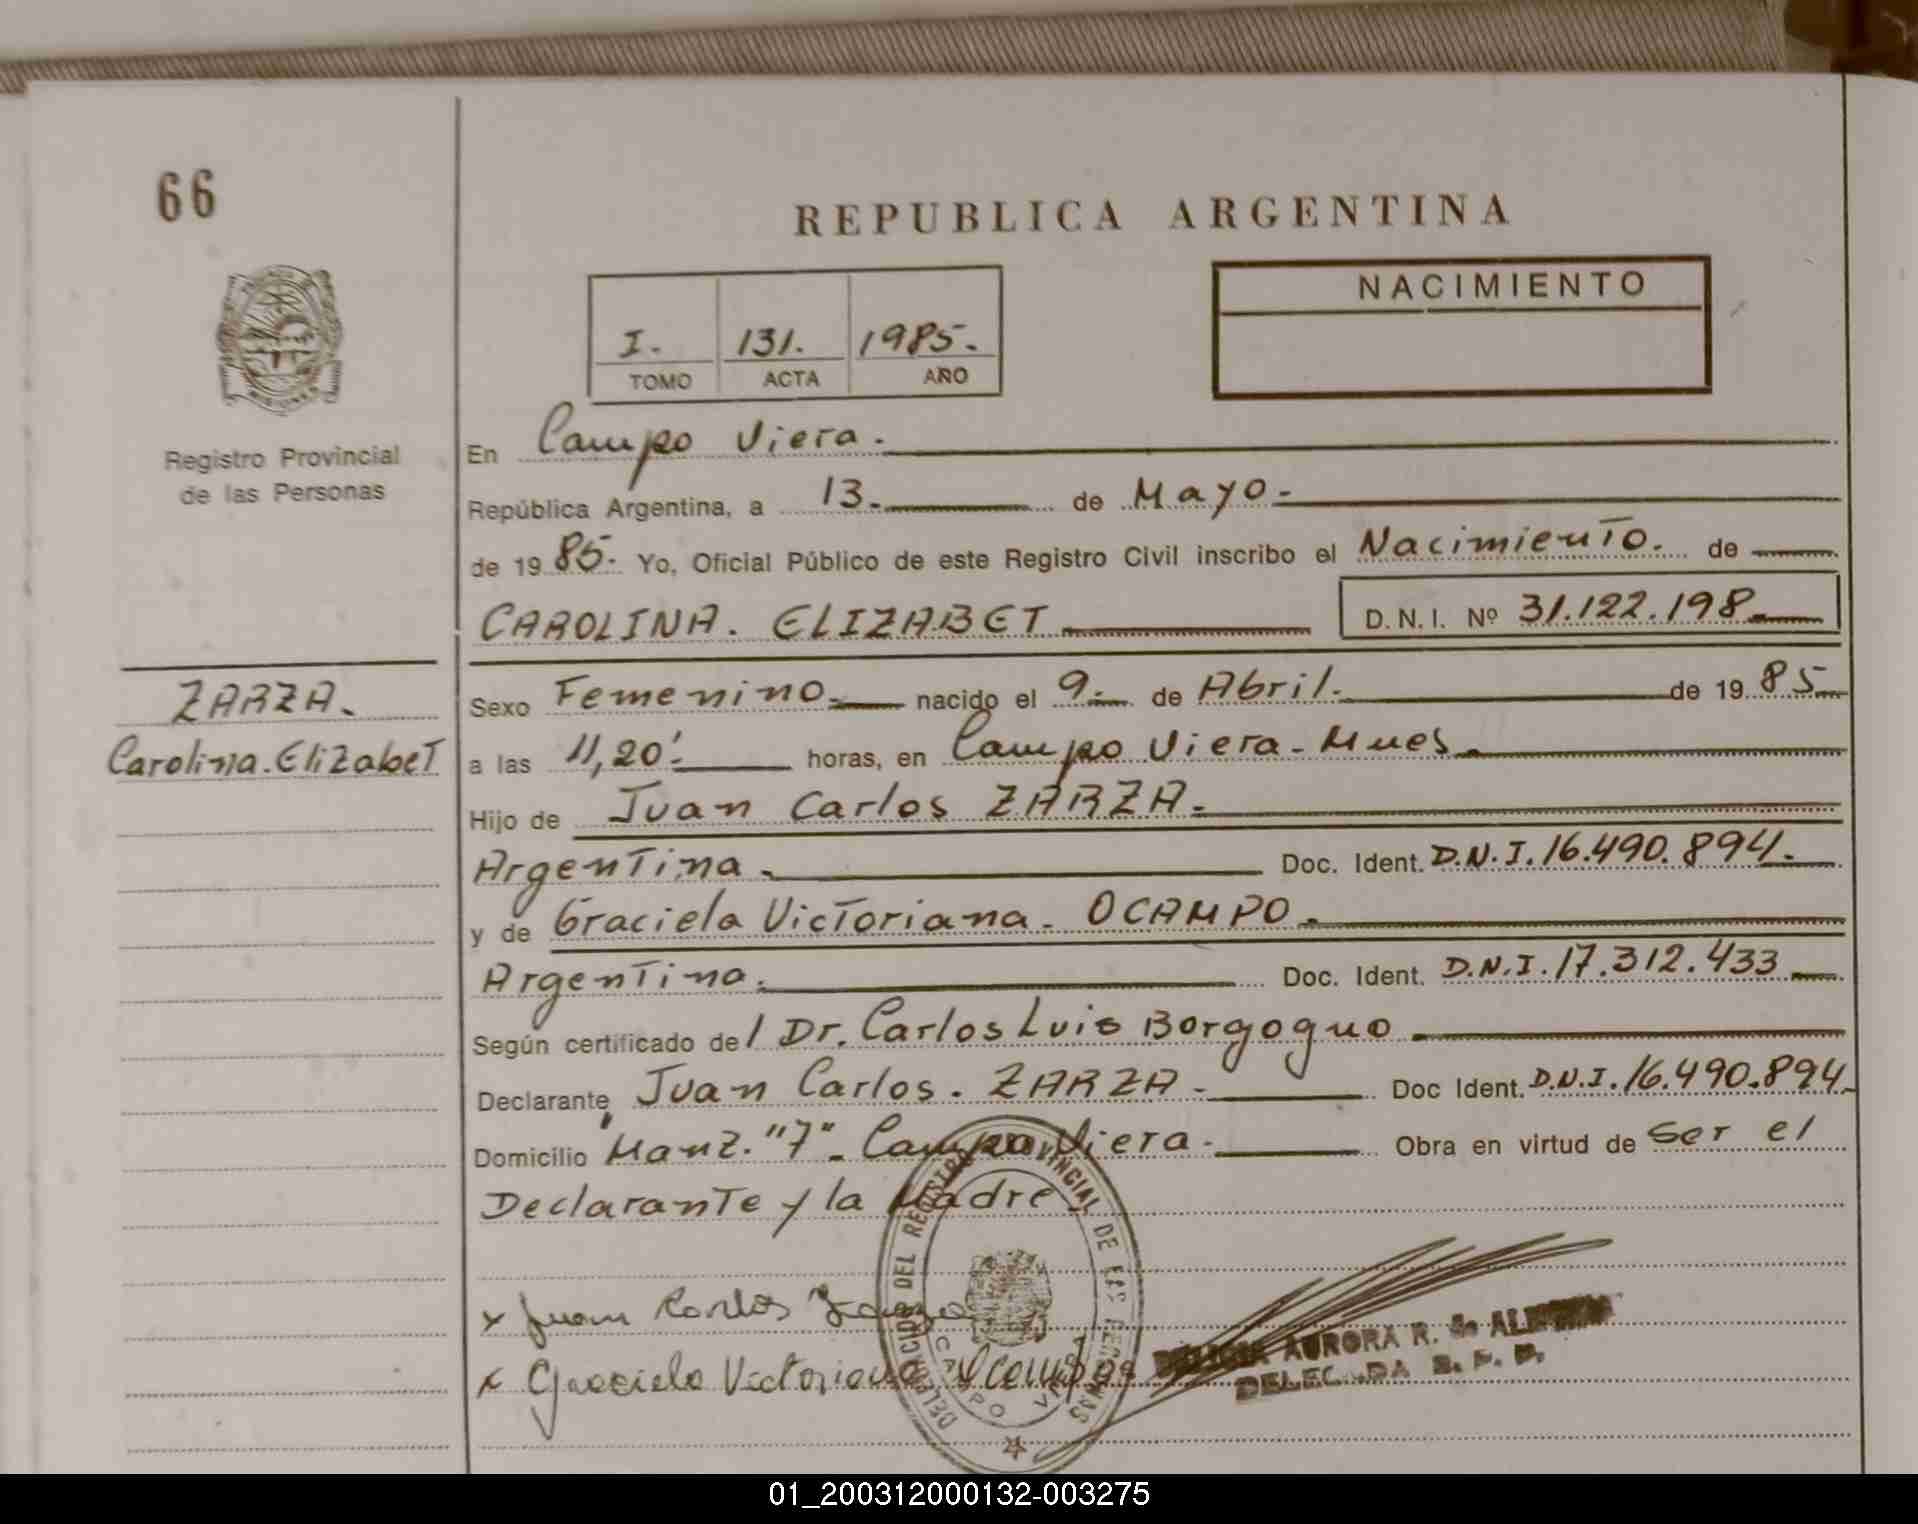 66
REPUBLICA ARGENTINA
NACIMIENTO
I. 131. 1985.
TOMO ACTA AÑO
MISIONES
Registro Provincial
de las Personas
En Campo Viera.
República Argentina, a 13. de Mayo.
de 19 85. Yo, Oficial Público de este Registro Civil inscribo el Nacimiento. de
CAROLINA. ELIZABET D.N.I. Nº 31.122.198
ZARZA.
Carolina. Elizabet
Sexo Femenino nacido el 9. de Abril. de 19 85
a las 11,20' horas, en Campo Viera - Mnes.
Hijo de Juan Carlos ZARZA.
Argentina. Doc. Ident. D.N.I. 16.490.894.
y de Graciela Victoriana. OCAMPO.
Argentina. Doc. Ident. D.N.I. 17.312.433
Según certificado de l Dr. Carlos Luis Borgogno
Declarante Juan Carlos. ZARZA. Doc Ident. D.N.I. 16.490.894
Domicilio Manz. "7". Campo Viera. Obra en virtud de ser el
Declarante y la Madre
x Juan Carlos Zarza
x Graciela Victoriana Ocampo
DELEGACION DEL REGISTRO PROVINCIAL DE LAS PERSONAS
CAMPO VIERA
AURORA R. de
DELEGADA
01_200312000132-003275